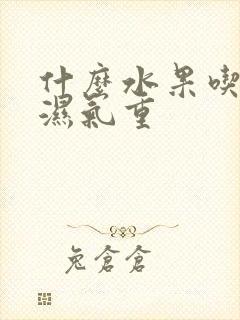 什麼水果喫
濕氣重
兔倉倉